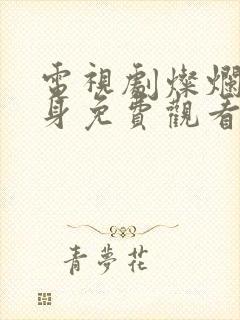 電視劇燦爛
身免費觀看
青夢花